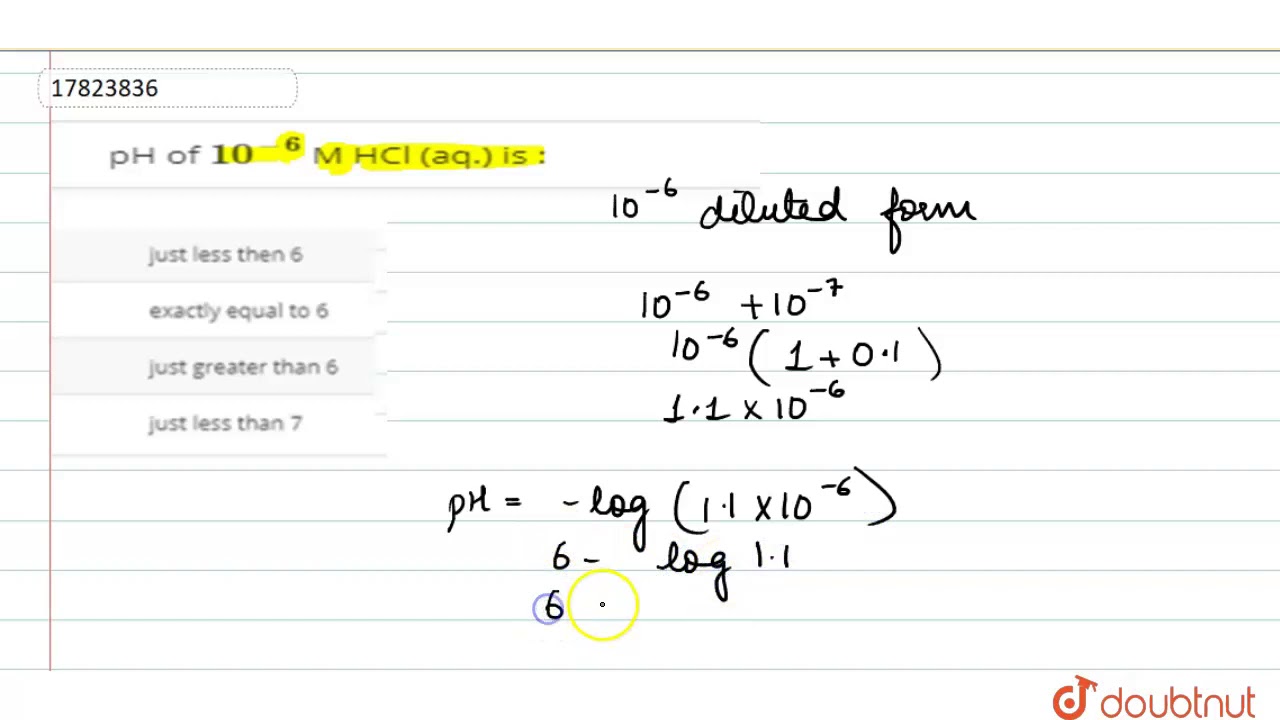 17823836
pH of 10⁻⁶ M HCl (aq.) is :
10⁻⁶ diluted form
just less then 6
10⁻⁶ + 10⁻⁷
exactly equal to 6
10⁻⁶ ( 1 + 0.1 )
just greater than 6
1.1 x 10⁻⁶
just less than 7
pH = - log (1.1 x 10⁻⁶)
6 - log 1.1
6
doubtnut